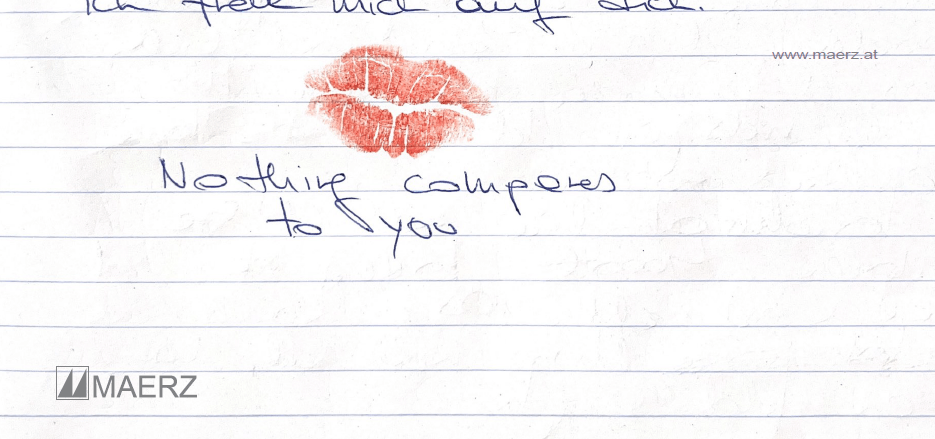 Ich freue mich auf dich.
www.maerz.at
Nothing comperes
to you
MAERZ